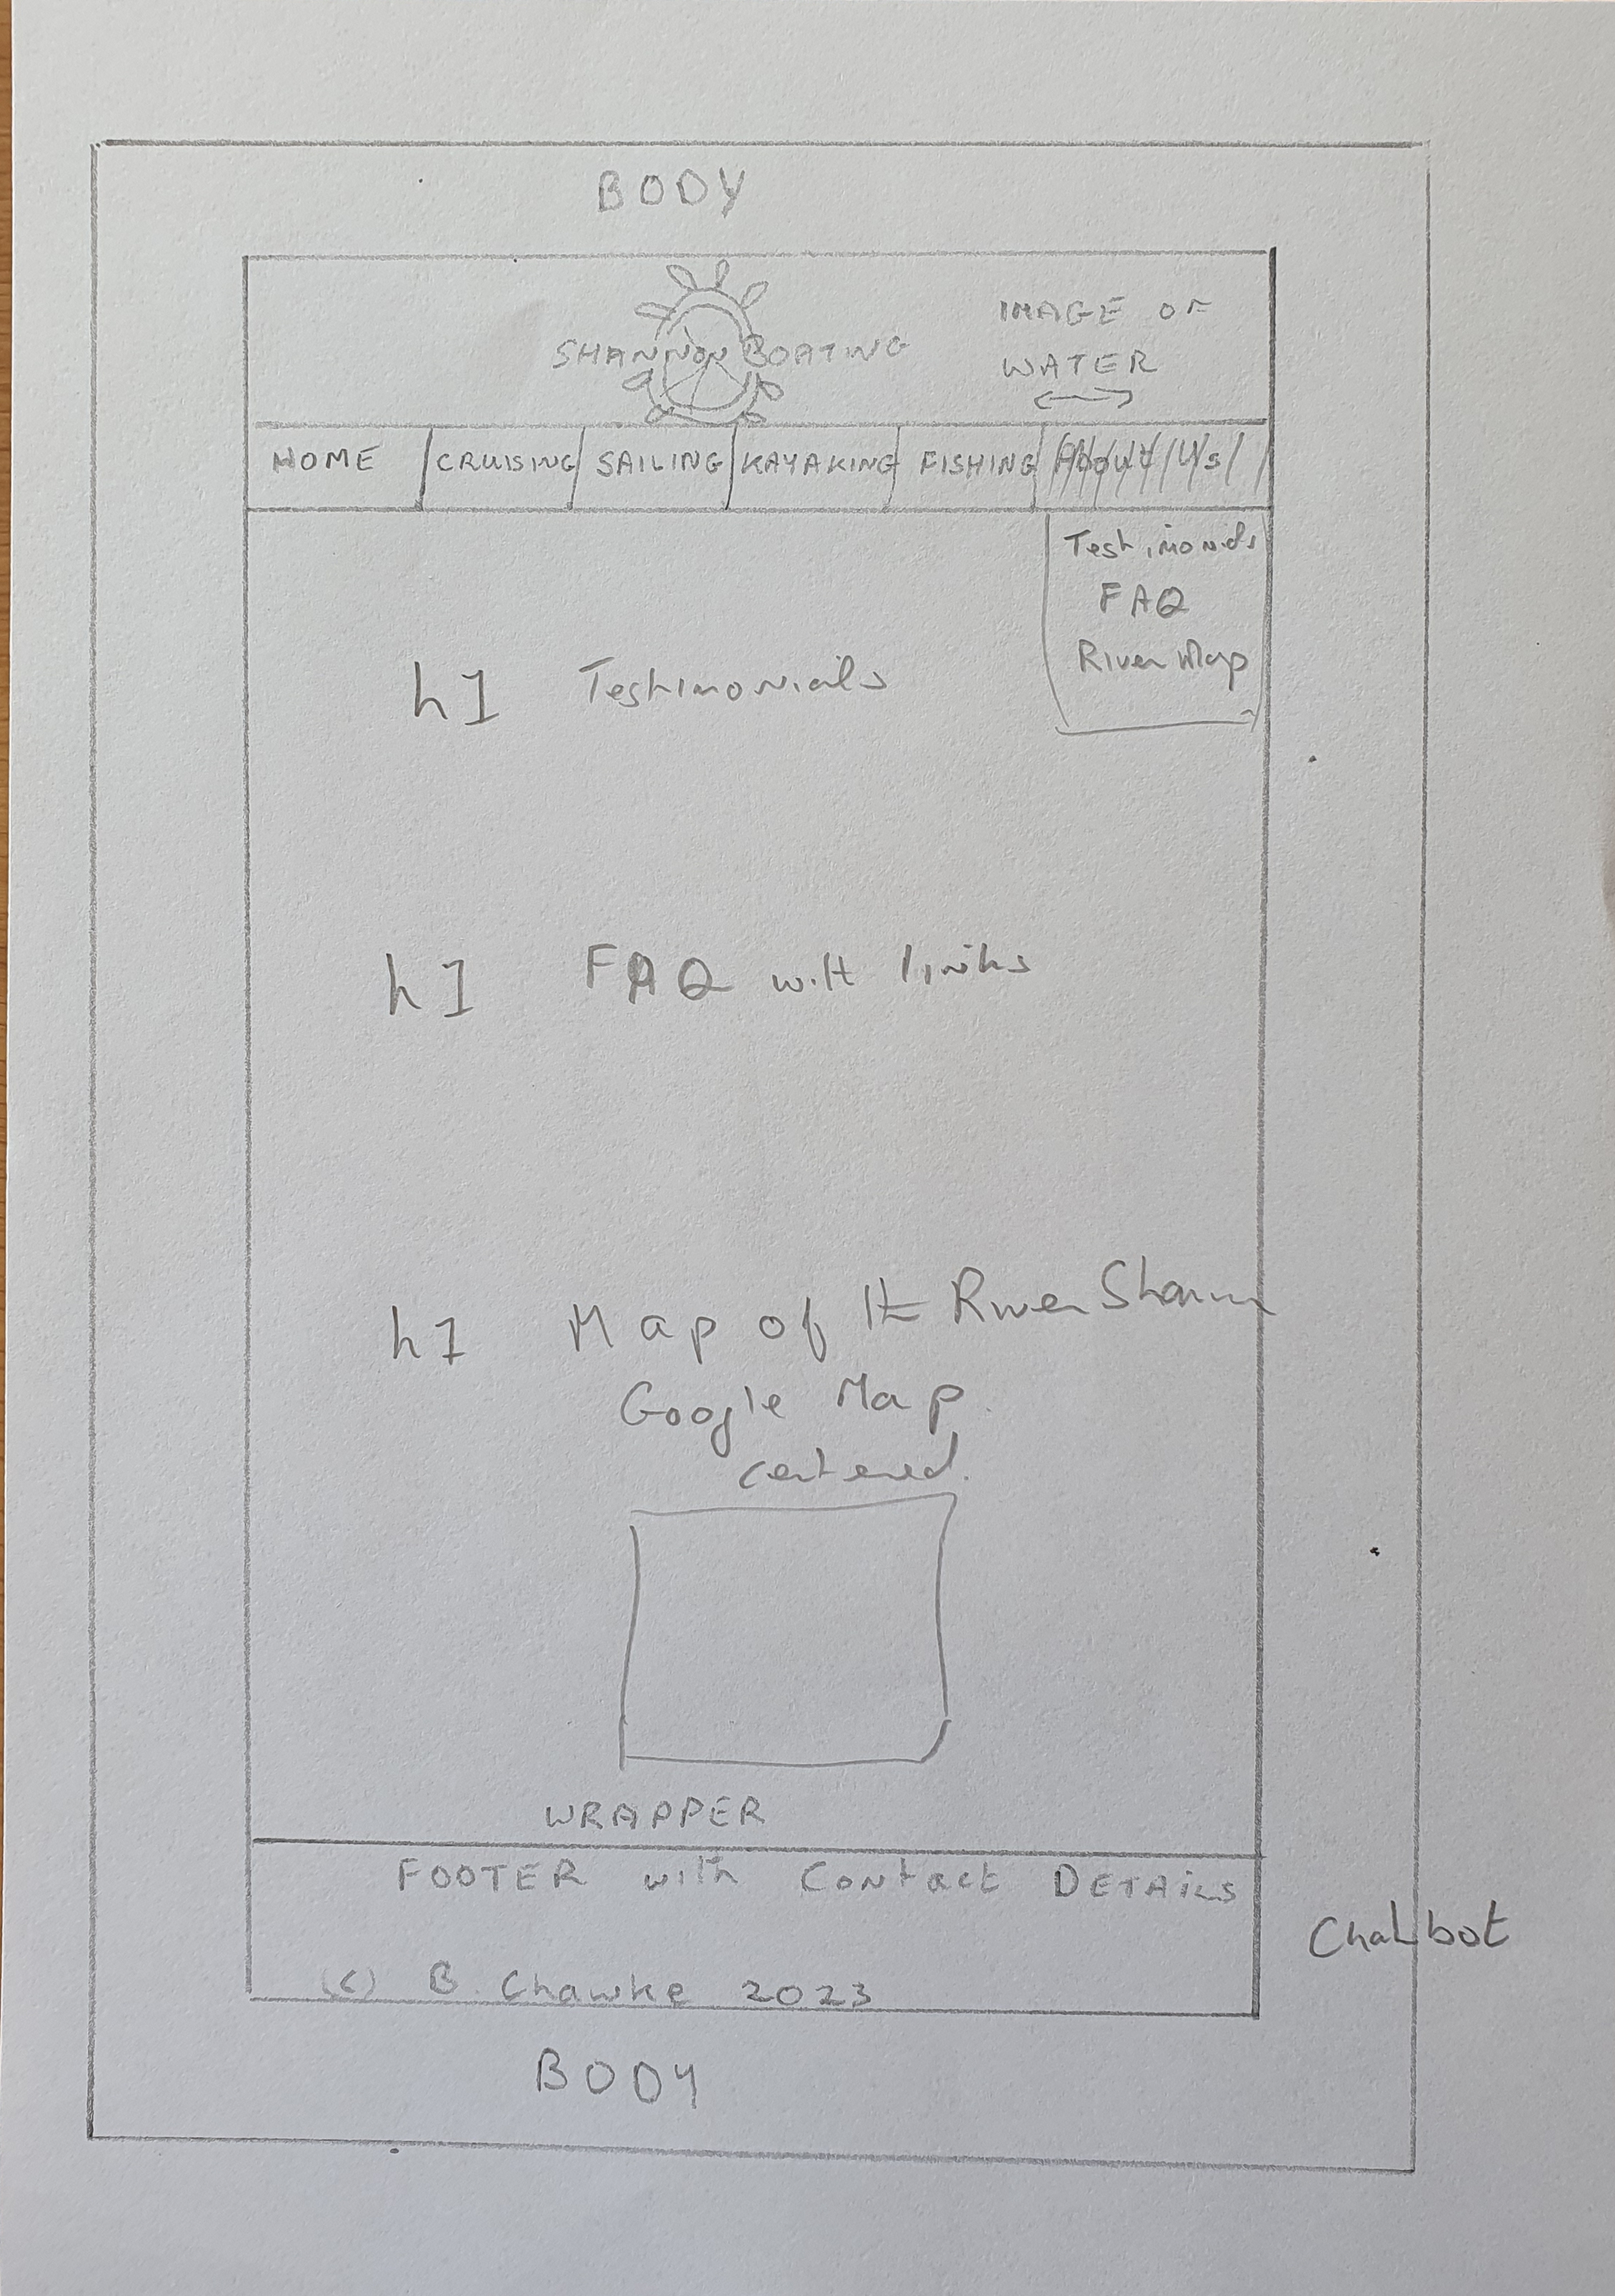 BODY
SHANNON BOATING
IMAGE OF
WATER
HOME CRUISING SAILING KAYAKING FISHING About Us
Testimonials
FAQ
River Map
h1 Testimonials
h1 FAQ with links
h1 Map of the River Shannon
Google Map
centered.
WRAPPER
FOOTER with Contact DETAILS
Chatbot
(c) B. Chawke 2023
BODY